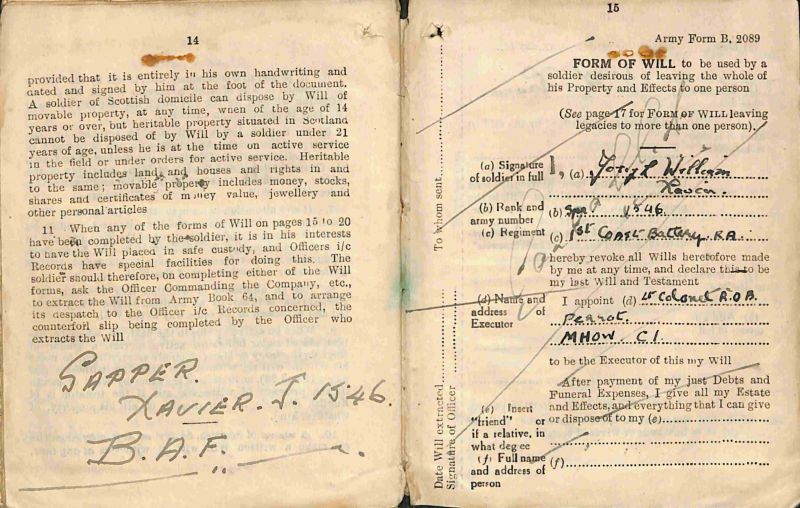 14
provided that it is entirely in his own handwriting and
dated and signed by him at the foot of the document.
A soldier of Scottish domicile can dispose by Will of
movable property, at any time, when of the age of 14
years or over, but heritable property situated in Scotland
cannot be disposed of by Will by a soldier under 21
years of age, unless he is at the time on active service
in the field or under orders for active service. Heritable
property includes land and houses and rights in and
to the same; movable property includes money, stocks,
shares and certificates of money value, jewellery and
other personal articles
11 When any of the forms of Will on pages 15 to 20
have been completed by the soldier, it is in his interests
to have the Will placed in safe custody, and Officers i/c
Records have special facilities for doing this. The
soldier should therefore, on completing either of the Will
forms, ask the Officer Commanding the Company, etc.,
to extract the Will from Army Book 64, and to arrange
its despatch to the Officer i/c Records concerned, the
counterfoil slip being completed by the Officer who
extracts the Will
SAPPER.
XAVIER. J. 1546.
B.A.F.
15
Army Form B. 2089
FORM OF WILL to be used by a
soldier desirous of leaving the whole of
his Property and Effects to one person
(See page 17 for FORM OF WILL leaving
legacies to more than one person).
(a) Signature
of soldier in full
(a) William
Xavier.
(b) Rank and
army number
(b) Spr 1546
(c) Regiment
(c) 1st Coast Battery. R.A.
hereby revoke all Wills heretofore made
by me at any time, and declare this to be
my last Will and Testament
(d) Name and
address of
Executor
I appoint (d) Lt Colonel R.O.B.
Perrot.
MHOW. C.I.
to be the Executor of this my Will
After payment of my just Debts and
Funeral Expenses, I give all my Estate
and Effects, and everything that I can give
or dispose of to my (e)
(e) Insert
"friend" or
if a relative, in
what degree
(f) Full name
and address of
person
(f)
To whom sent
Date Will extracted
Signature of Officer